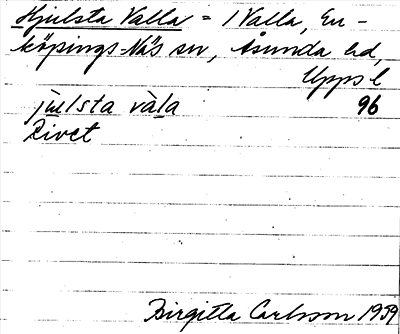 Hjulsta Valla = 1 Valla, En-
köpings-Näs sn, Åsunda hd,
Upps l
jùlsta vàla 96
Livet
Birgitta Carlsson 1959